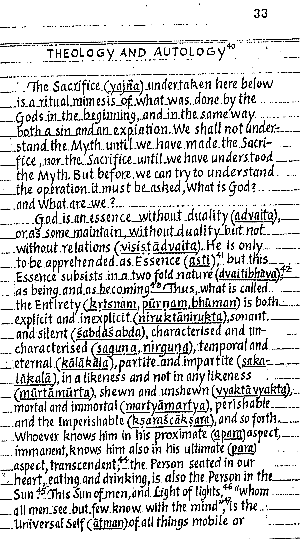 33
THEOLOGY AND AUTOLOGY⁴⁰
The Sacrifice (yajña) undertaken here below
is a ritual mimesis of what was done by the
Gods in the beginning, and in the same way
both a sin and an expiation. We shall not under-
stand the Myth until we have made the Sacri-
fice, nor the Sacrifice until we have understood
the Myth. But before we can try to understand
the operation it must be asked, What is God?
and What are we?
God is an essence without duality (advaita),
or, as some maintain, without duality but not
without relations (visistādvaita). He is only
to be apprehended as Essence (asti),⁴¹ but this
Essence subsists in a two fold nature (dvaitībhāva);⁴²
as being and as becoming. Thus, what is called
the Entirety (kṛtsnam, pūrṇam, bhūman) is both
explicit and inexplicit (niruktānirukta), sonant
and silent (śabdāśabda), characterised and un-
characterised (saguṇa, nirguṇa), temporal and
eternal (kālākāla), partite and impartite (saka-
lākalā), in a likeness and not in any likeness
(mūrtāmūrta), shewn and unshewn (vyaktāvyakta),
mortal and immortal (martyāmartya), perishable
and the Imperishable (kṣaraścākṣara), and so forth.
Whoever knows him in his proximate (apara) aspect,
immanent, knows him also in his ultimate (para)
aspect, transcendent;⁴⁴ the Person seated in our
heart, eating and drinking, is also the Person in the
Sun.⁴⁵ This Sun of men, and Light of lights,⁴⁶ "whom
all men see but few know with the mind",⁴⁷ is the
Universal Self (ātman) of all things mobile or